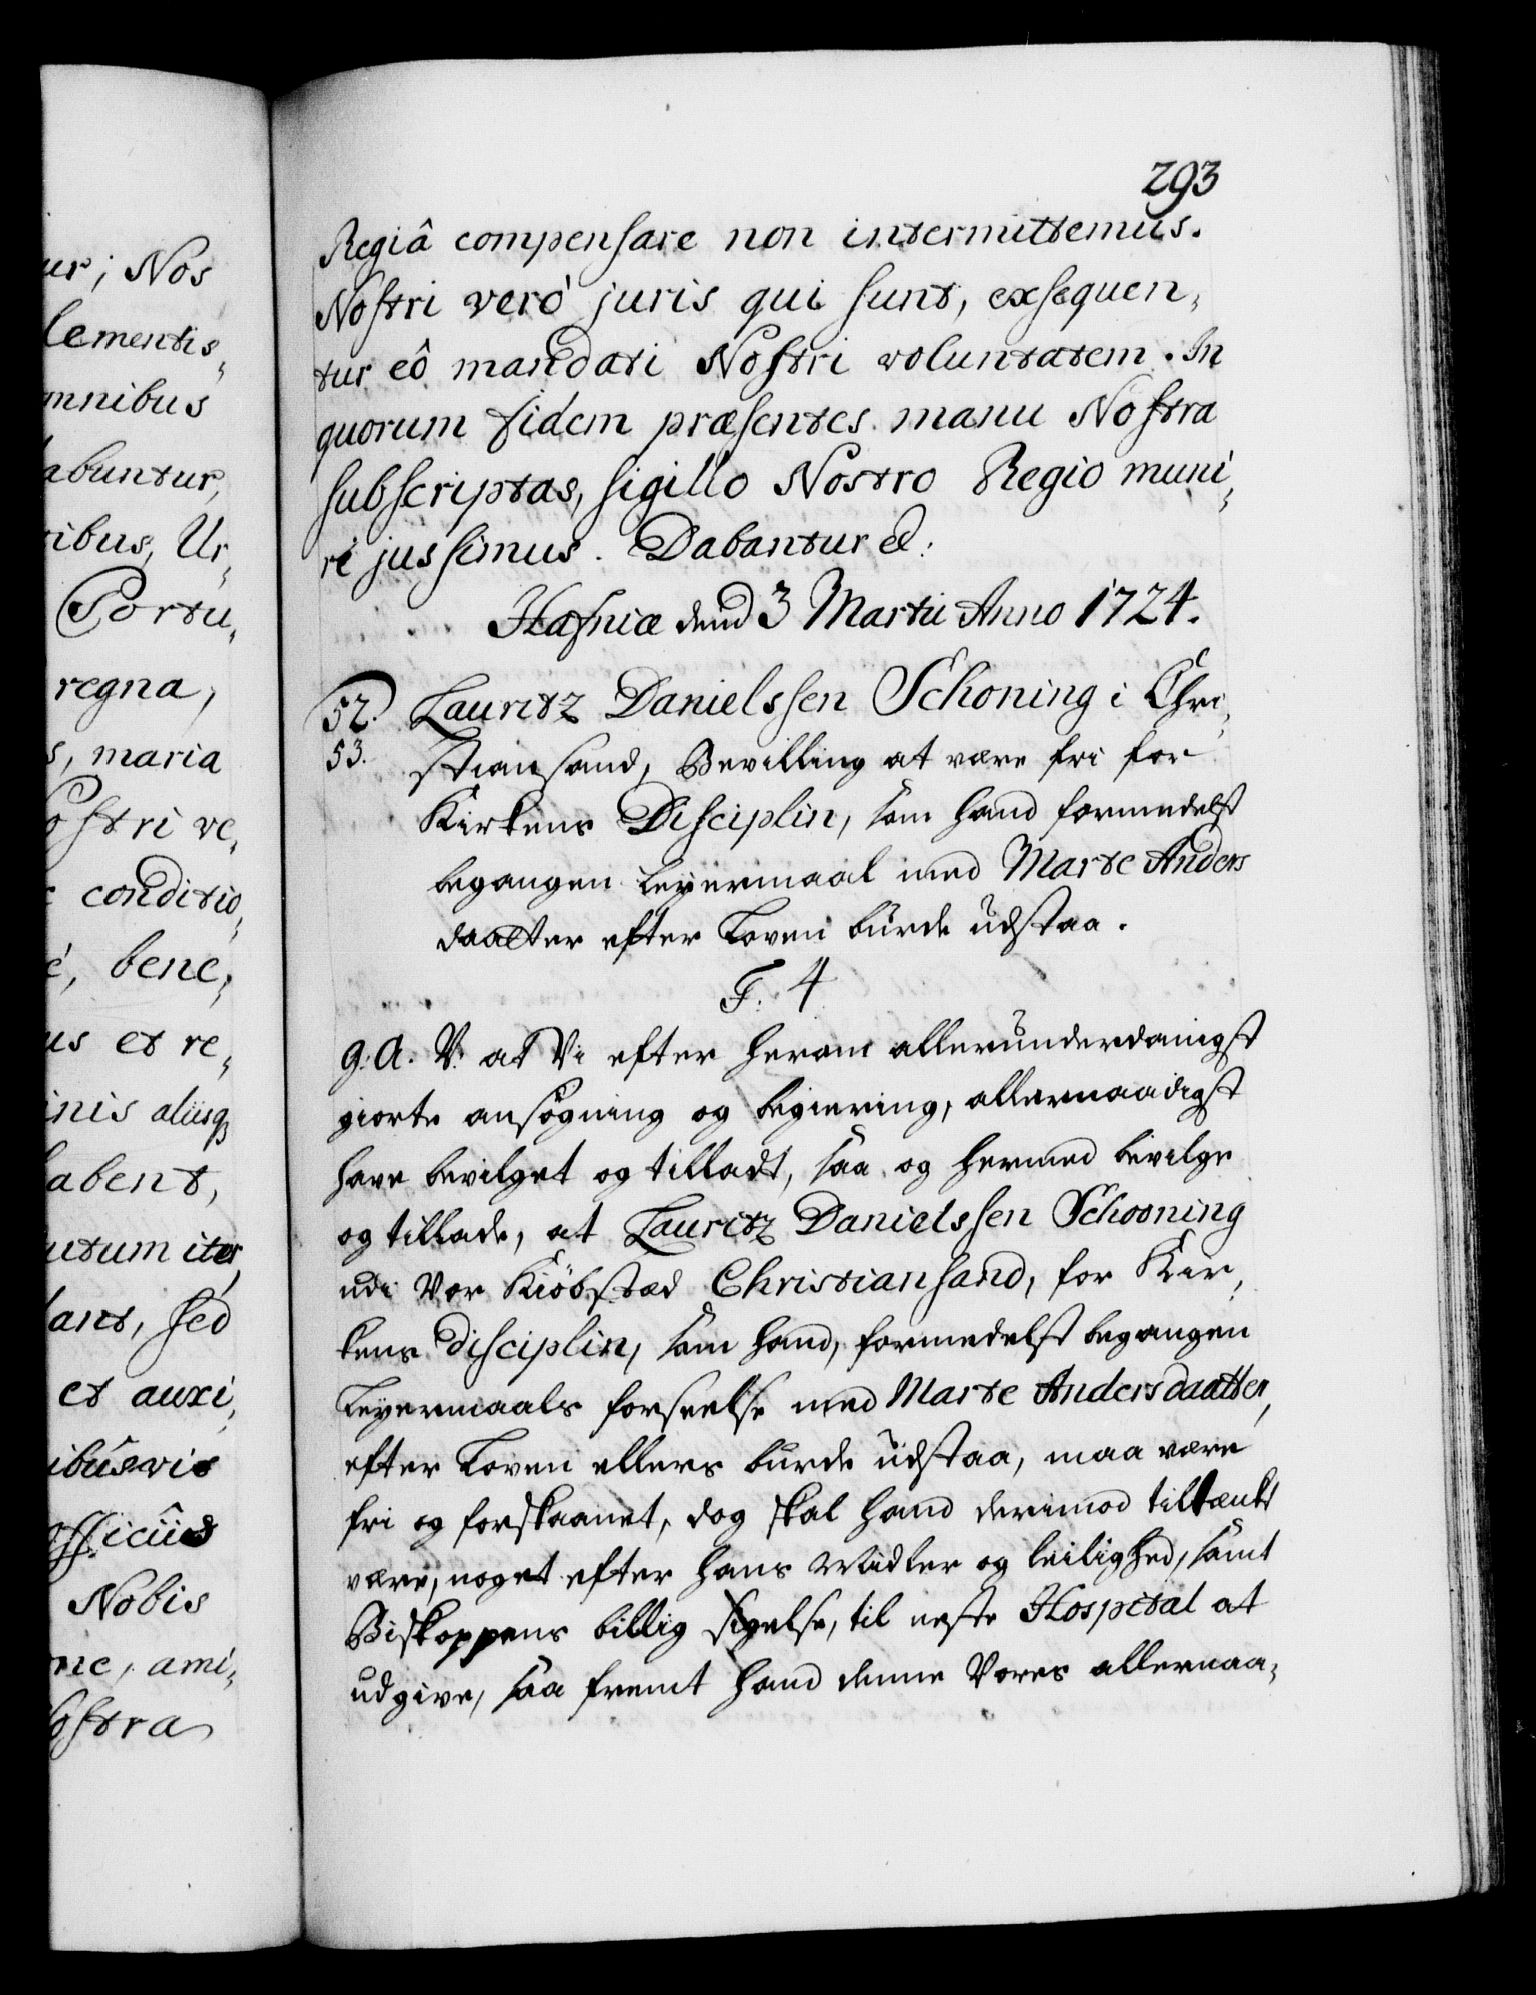 ur; Nos
lementis„
mnibus
abuntur,
ribus, Ur„
Portu„
regna,
s, maria
ostri ve„
conditio„
é, bene„
us et re„
inis aliisq
abent,
utum iter
ant, sed
et auxi„
ibusvis
officiis
Nobis
ne, ami„
ostra
293
Regiâ compensare non intermittemus.
Nostri veró juris qui sunt, exsequen„
tur eô mandati Nostri voluntatem. In
quorum fidem præsentes manu Nostra
subscriptas, sigillo Nostro Regio muni„
ri jussimus. Dabantur &:
Hafniæ dend 3 Martii Anno 1724.
52. Lauritz Danielssen Schoning i Chri„
53. stiansand, Bevilling at være fri for
Kirkens Disciplin, som hand formedelst
begangen Leyermaal med Marte Anders
daatter efter Loven burde udstaa.
F. 4
G. A. V. at Vi efter herom allerunderdanigst
giorte ansøgning og begiering, allernaadigst
have bevilget og tilladt, saa og hermed bevilge
og tillade, at Lauritz Danielssen Schooning
udi Vor Kiöbstæd Christiansand, for Kir„
kens disciplin, som hand, formedelst begangen
Leyermaals forseelse med Marte Andersdaatter,
efter Loven ellers burde udstaa, maa være
fri og forskaanet, dog skal hand derimod tiltænkt
være, noget efter hans Midler og leilighed, samt
Biskoppens billig sigelse, til neste Hospital at
udgive, saa fremt hand denne Vores allernaa„